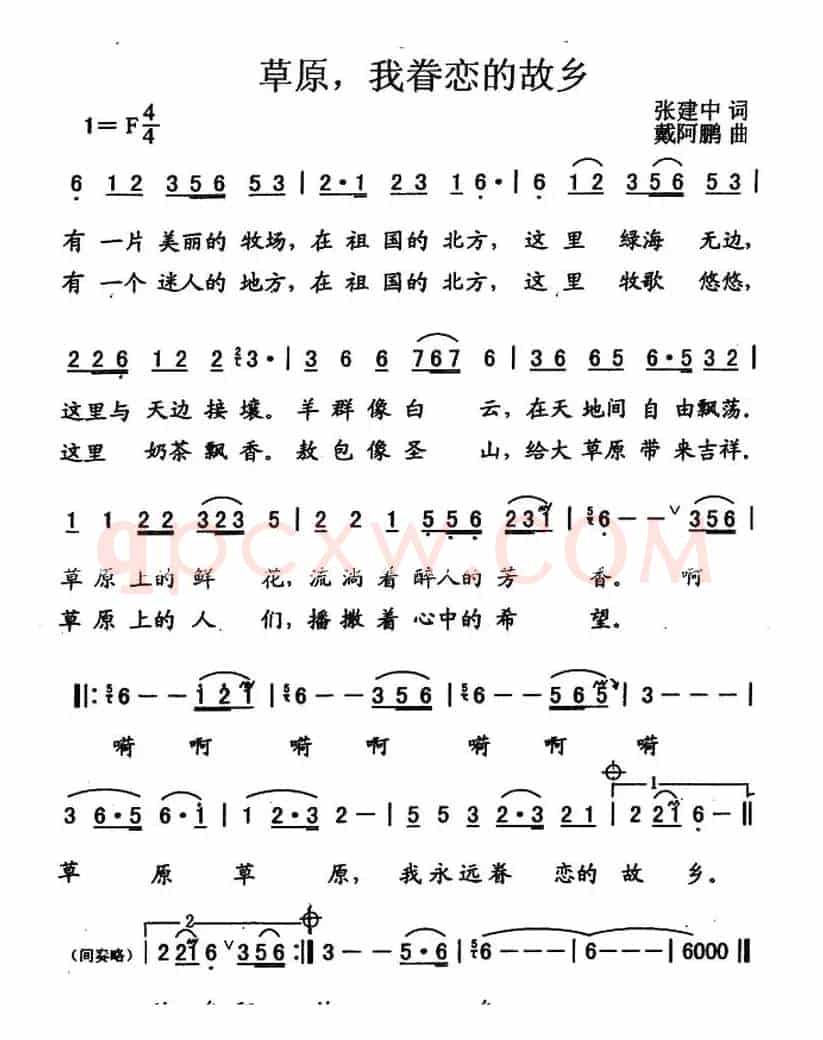 草原，我眷恋的故乡
1= F 4/4
张建中 词
戴阿鹏 曲
6 12 356 53 | 2·1 23 16· | 6 12 356 53 |
有一片美丽的牧场，在祖国的北方，这里绿海 无边，
有一个迷人的地方，在祖国的北方，这里牧歌 悠悠，
226 12 2 3· | 3 6 6 767 6 | 36 65 6·5 32 |
这里与 天边接壤。羊群像白 云，在天地间自由飘荡.
这里 奶茶飘香。敖包像圣 山，给大草原带来吉祥.
1 1 22 323 5 | 2 2 1 556 231 | 6 - - ∨ 356 |
草原上的鲜 花，流淌着醉人的芳 香。啊
草原上的人 们，播撒着心中的希 望。
qpcxw.COM
‖: 6 - - 121 | 6 - - 356 | 6 - - 565 | 3 - - - |
嗬 啊 嗬 啊 嗬 啊 嗬
1
3 6·5 6·1 | 1 2·3 2 - | 5 5 3 2·3 21 | 2 221 6 - ‖
草 原 草 原，我永远眷 恋的故 乡。
2
(间奏略) | 2 221 6 ∨ 356 :‖ 3 - - 5·6 | 6 - - - | 6 - - - | 6000 ‖